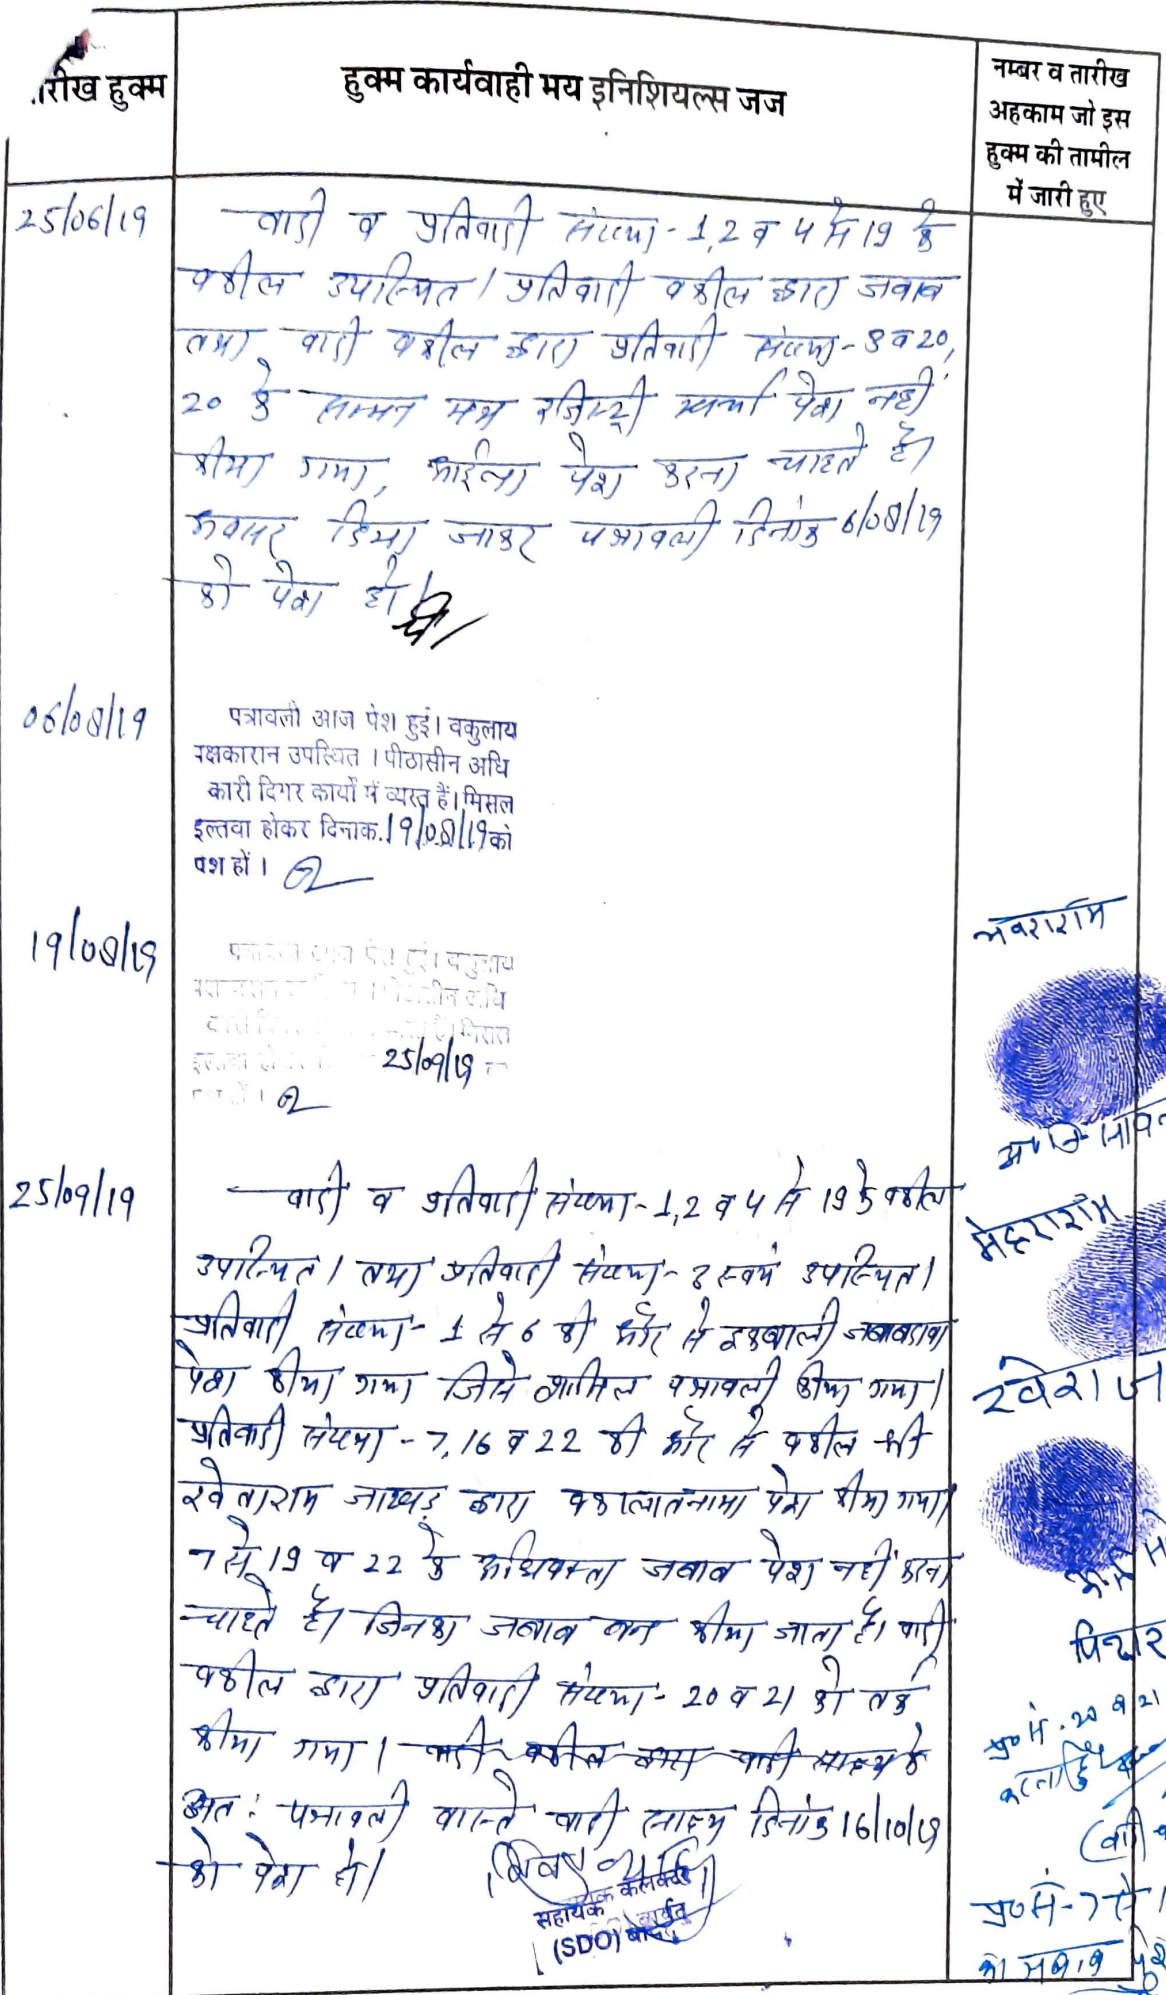 तारीख हुक्म
हुक्म कार्यवाही मय इनिशियल्स जज
नम्बर व तारीख
अहकाम जो इस
हुक्म की तामील
में जारी हुए
25/06/19
वादी व प्रतिवादी संख्या-1,2 व 4 से 19 के
वकील उपस्थित। प्रतिवादी वकील द्वारा जवाब
तथा वादी वकील द्वारा प्रतिवादी संख्या-8 व 20,
20 के सम्मन मय रजिस्ट्री खर्चा पेश नहीं
कीया गया, आईन्दा पेश करना चाहते है।
अवसर दिया जाकर पत्रावली दिनांक 6/08/19
को पेश हो।
06/08/19
पत्रावली आज पेश हुई। वकुलाय
पक्षकारान उपस्थित । पीठासीन अधि
कारी दिगर कार्यों में व्यस्त हैं। मिसल
इल्तवा होकर दिनाक.19/08/19 को
पेश हों ।
19/08/19
पत्रावली आज पेश हुई। वकुलाय
पीठासीन अधि
मिसल
इल्तवा 25/09/19
25/09/19
वादी व प्रतिवादी संख्या-1,2 व 4 से 19 के वकील
उपस्थित। तथा प्रतिवादी संख्या-8 स्वयं उपस्थित।
प्रतिवादी संख्या-1 से 6 की ओर से इकबाली जवाबदावा
पेश कीया गया जिसे शामिल पत्रावली कीया गया।
प्रतिवादी संख्या-7,16 व 22 की ओर से वकील श्री
खेताराम जाखड़ द्वारा वकालातनामा पेश कीया गया।
7 से 19 व 22 के अधिवक्ता जवाब पेश नहीं करना
चाहते है। जिनका जवाब बन्द कीया जाता है। वादी
वकील द्वारा प्रतिवादी संख्या-20 व 21 को तर्क
कीया गया। वादी वकील द्वारा वादी साक्ष्य के
अत: पत्रावली वास्ते वादी साक्ष्य दिनांक 16/10/19
को पेश हो।
सहायक कलक्टर
(SDO)
भवराराम
मेहराराम
खेराज
प्र०सं. 20 व 21
प्र०सं-7 से
का जवाब